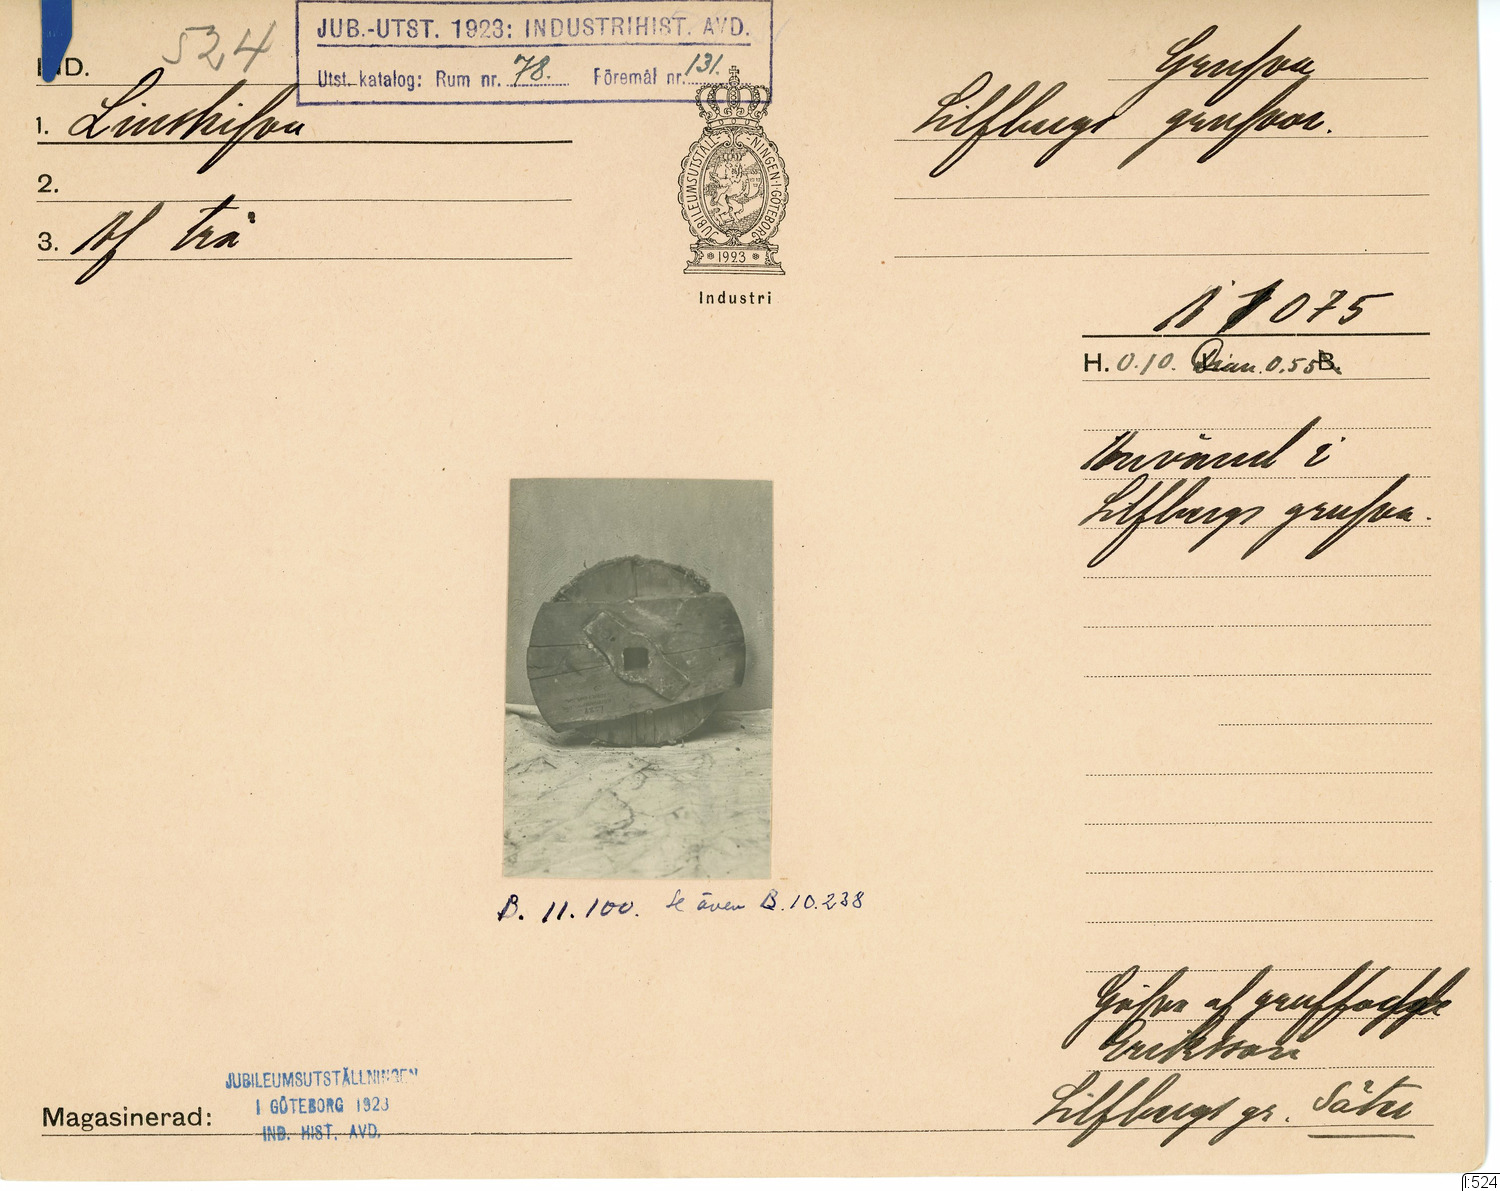 JUB.-UTST. 1923: INDUSTRIHIST. AVD.
Utst. katalog: Rum nr. 78. Föremål nr. 131.
524
IND.
Grufva
1. Linskifva
Lilfbergs grufvor.
2.
3. Af trä
JUBILEUMSUTSTÄLLNINGEN·I·GÖTEBORG
1923
Industri
N 1075
H. 0.10. Diam. 0.55 B.
Använd i
Lilfbergs grufva.
B. 11.100. Se även B.10.238
Gåfva af gruffogde
Eriksson
Lilfbergs gr. Säter
JUBILEUMSUTSTÄLLNINGEN
I GÖTEBORG 1923
IND. HIST. AVD.
Magasinerad:
I:524